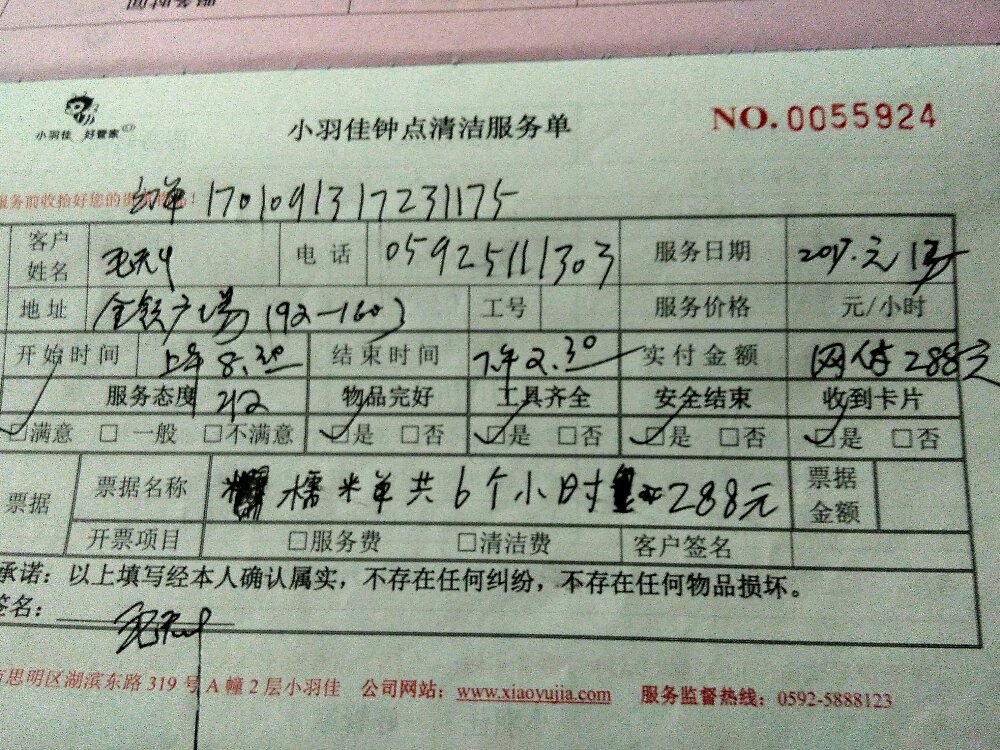 小羽佳 好管家
小羽佳钟点清洁服务单
NO.0055924
服务前收拾好您的贵重物品!
单 1701091317231175
客户姓名 电话 05925111303 服务日期 2017.元
地址 192-1603 工号 服务价格 元/小时
开始时间 上午8.30 结束时间 下午2.30 实付金额 网付288元
服务态度 物品完好 工具齐全 安全结束 收到卡片
□满意 □一般 □不满意 □是 □否 □是 □否 □是 □否 □是 □否
票据 票据名称 糯米单共6个小时 288元 票据金额
开票项目 □服务费 □清洁费 客户签名
承诺:以上填写经本人确认属实,不存在任何纠纷,不存在任何物品损坏。
签名:
思明区湖滨东路319号A幢2层小羽佳 公司网站:www.xiaoyujia.com 服务监督热线:0592-5888123